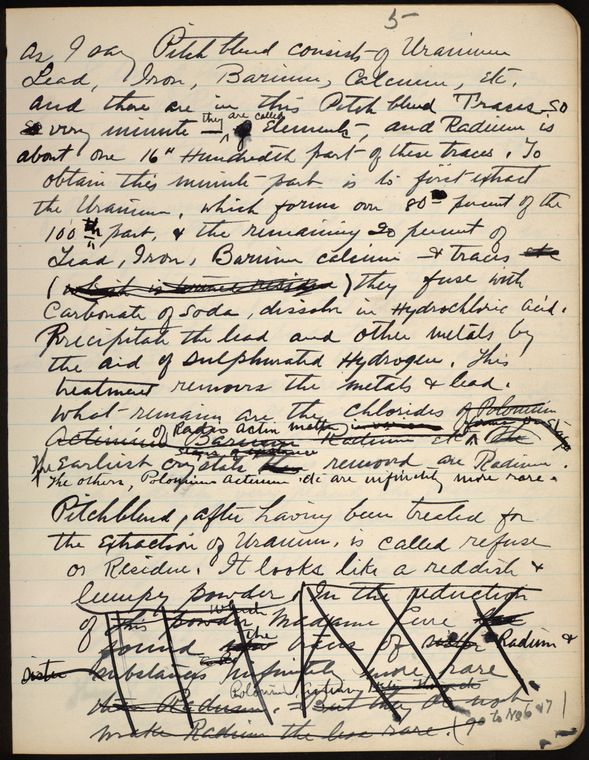 5
As I say Pitchblend consists of Uranium
Lead, Iron, Barium, Calcium, etc.
and there are in this Pitchblend Traces so
so very minute — they are called Elements, and Radium is
about one 16" Hundredth part of these traces. To
obtain this minute part is to first extract
the Uranium, which forms over 80 — percent of the
100th part, & the remaining 20 percent of
Lead, Iron, Barium calcium & traces etc
(which is termed residue) they fuse with
Carbonate of Soda, dissolve in Hydrochloric acid.
Precipitate the lead and other metals by
the aid of Sulphurated Hydrogen. This
treatment removes the metals & lead.
what remains are the chlorides of Polonium
Actinium of Radio Active matter Barium Radium etc the
The Earliest crystals removed are Radium.
The others, Polonium Actenium etc are infinitely more rare.
Pitchblend, after having been treated for
the extraction of Uranium, is called refuse
or Residue. It looks like a reddish &
lumpy powder. In the reduction
of this powder Madame Curie
found the of sister Radium &
sister substances infinitely more rare
than Radium. Polonium, But they do not
make Radium the less rare. (go to No 6 & 7)